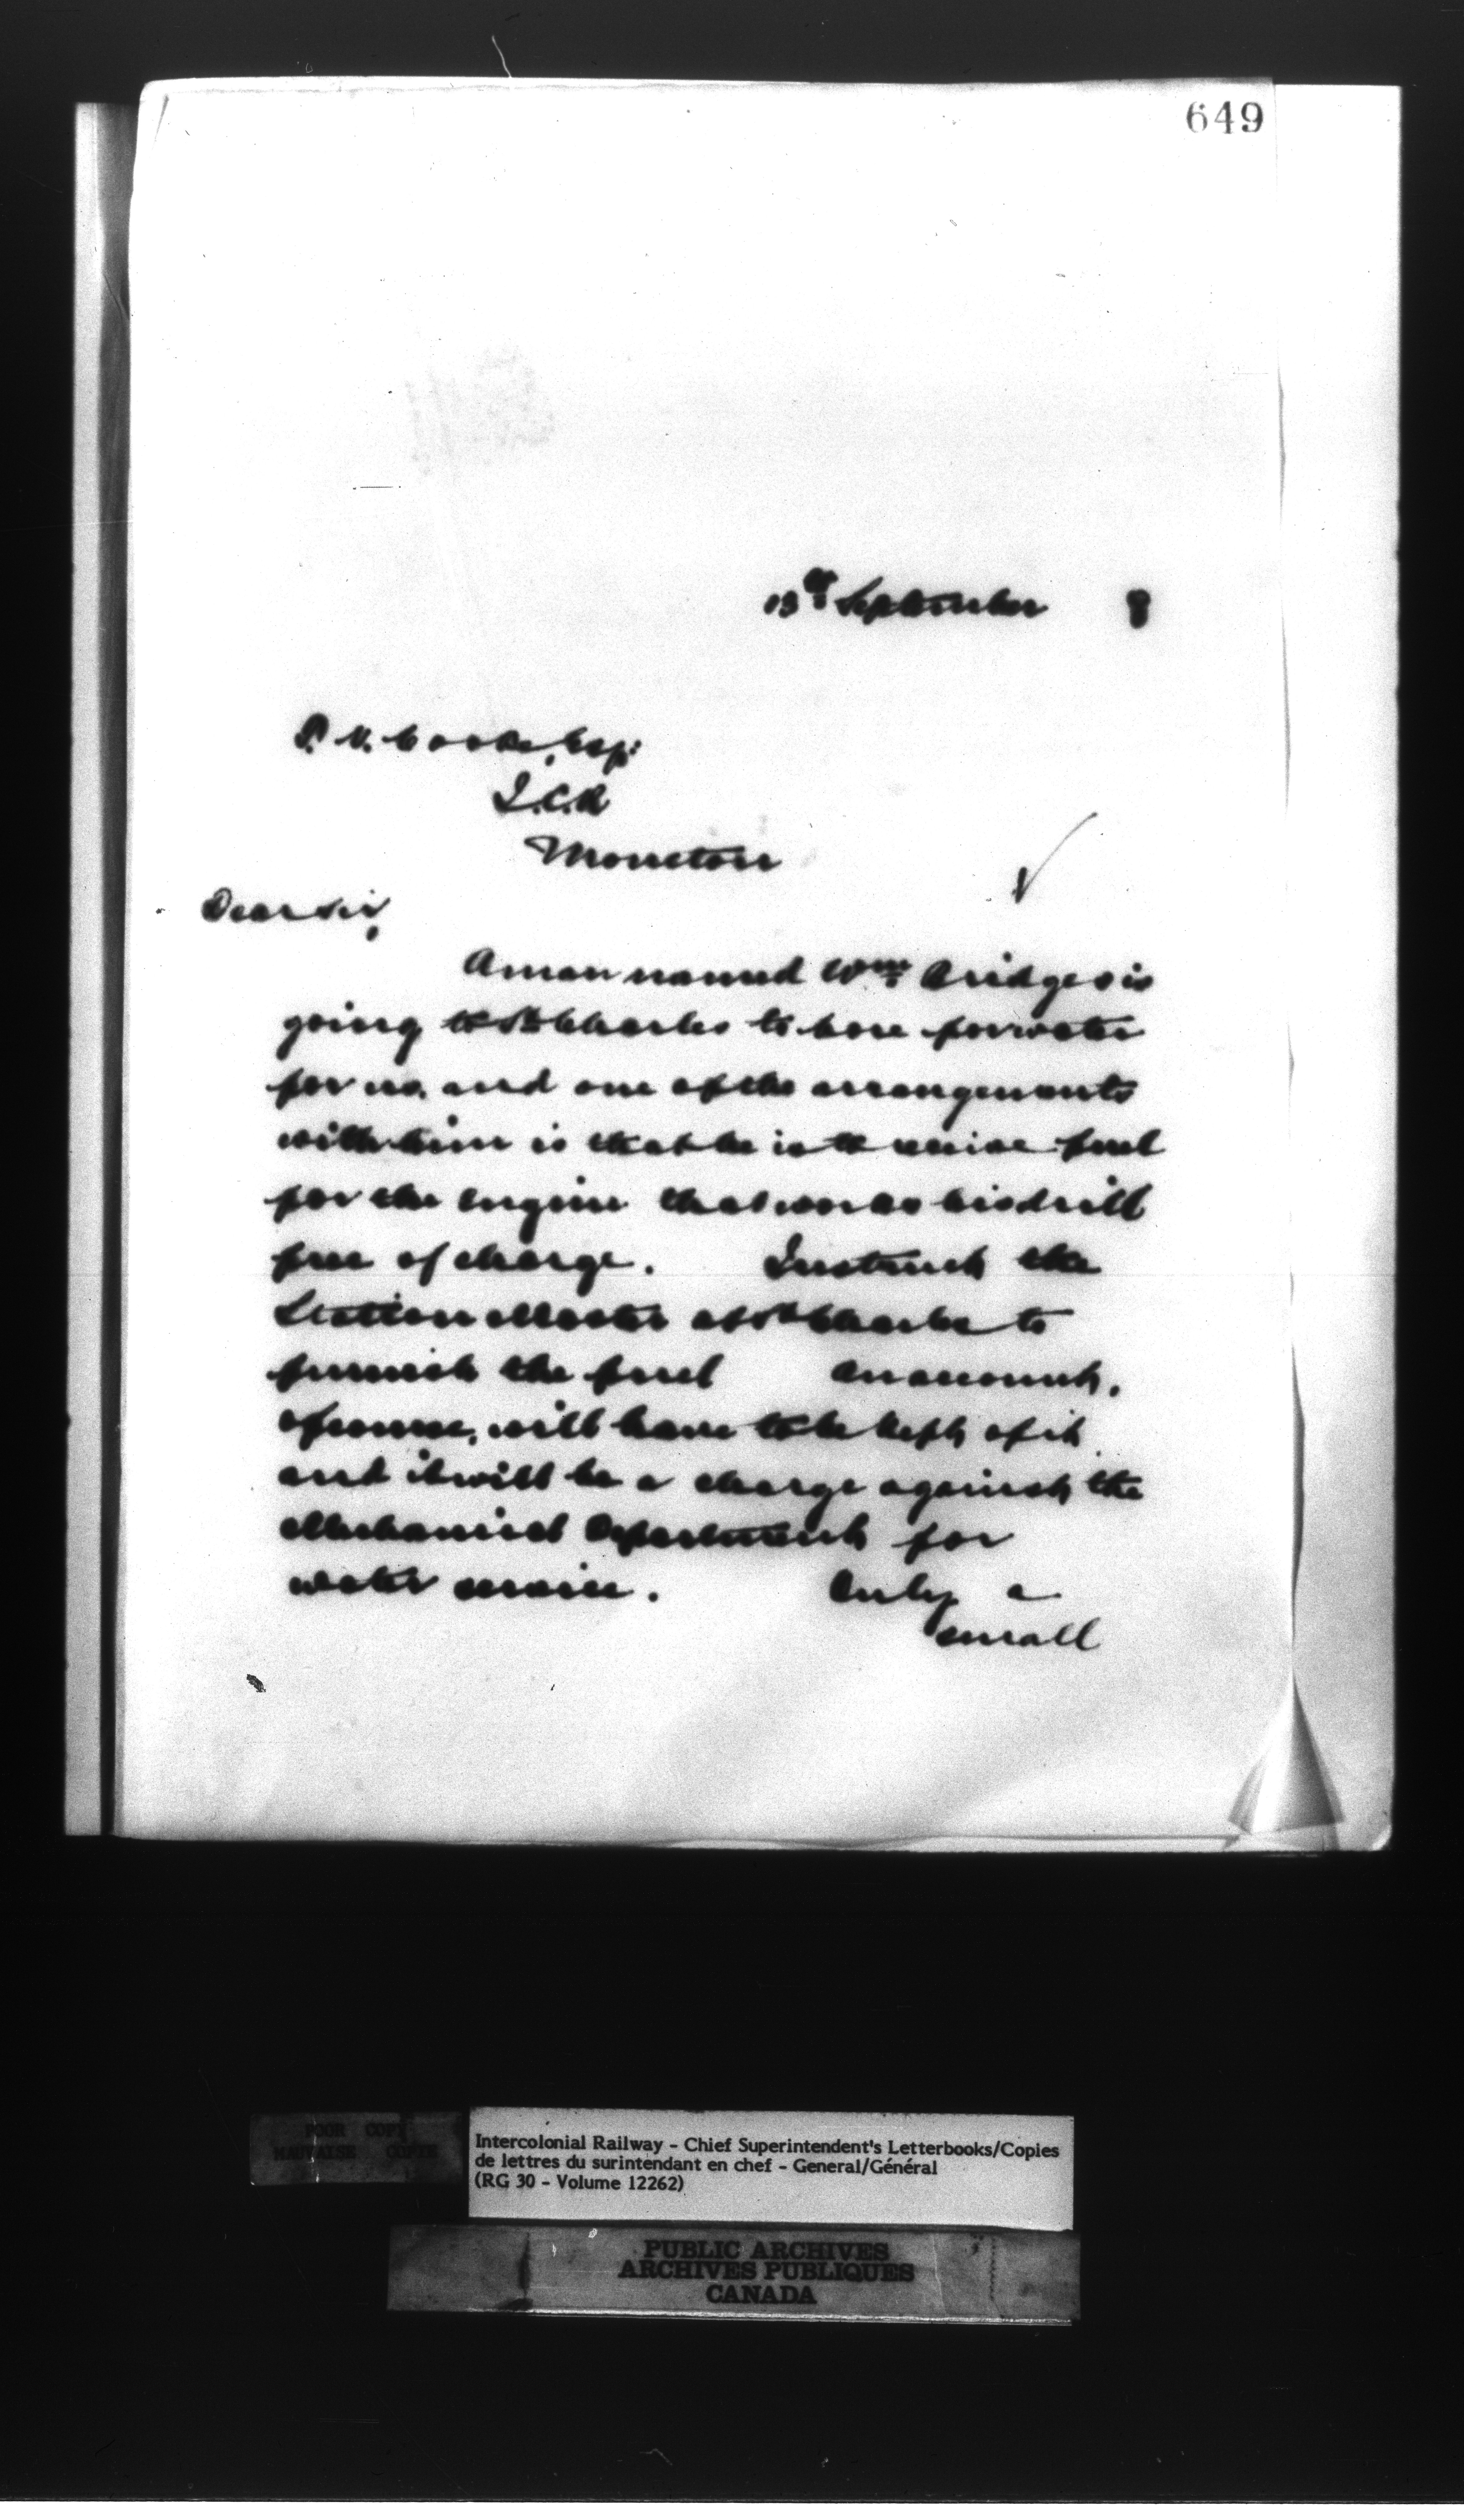 649
13th September 8
P. V. Cooke, Esq:
I.C.R
Moncton
Dear sir,
A man named Wm Bridges is
going to St Charles to bore for water
for us, and one of the arrangements
with him is that he is to receive fuel
for the engine that works his drill
free of charge. Instruct the
Station Master at St Charles to
furnish the fuel An account,
of course, will have to be kept of it
and it will be a charge against the
Mechanical Department for
water service. Only a
small
POOR COPY
MAUVAISE COPIE
Intercolonial Railway - Chief Superintendent's Letterbooks/Copies
de lettres du surintendant en chef - General/Général
(RG 30 - Volume 12262)
PUBLIC ARCHIVES
ARCHIVES PUBLIQUES
CANADA